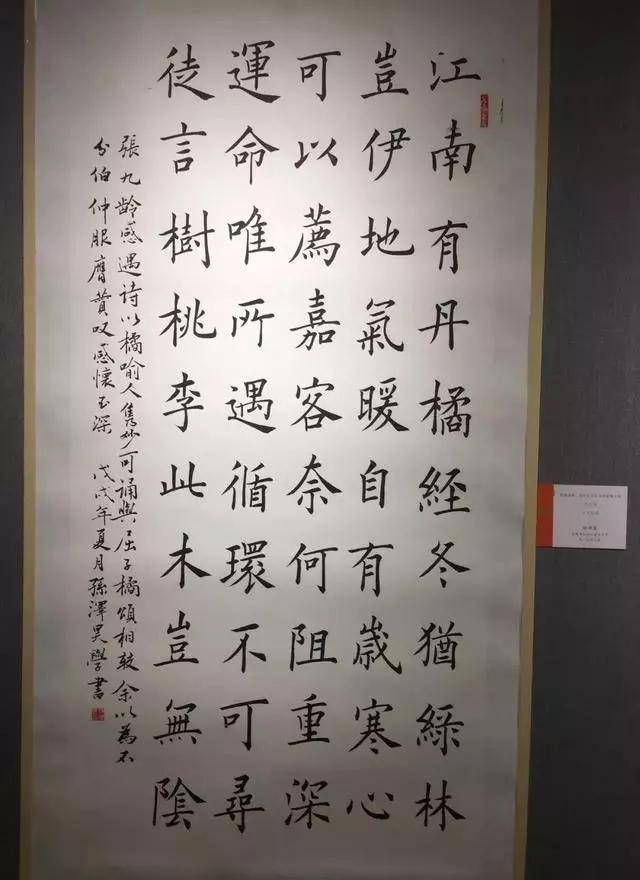 江南有丹橘經冬猶綠林
豈伊地氣暖自有歲寒心
可以薦嘉客奈何阻重深
運命唯所遇循環不可尋
徒言樹桃李此木豈無陰
張九齡感遇诗以橘喻人雋妙可誦與屈子橘頌相較余以為不
分伯仲服膺贊叹感懷至深 戊戌年夏月孫澤昊學書